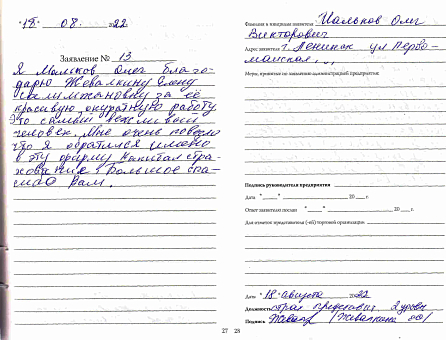 "18" 08 2022
Заявление № 13
Я Мальков Олег благо-
дарю Жевалкину Елену
Салимжановну за её
красивую, аккуратную работу
Это самый вежливый
человек. Мне очень повезло
что я обратился именно
в эту фирму Капитал стра-
хования. Большое спа-
сибо Вам.
27
Фамилия и инициалы заявителя Мальков Олег
Викторович
Адрес заявителя г. Ленинск ул Перво-
майская
Меры, принятые по заявлению администрацией предприятия:
Подпись руководителя предприятия
Дата " " 20 г.
Ответ заявителю послан " " 20 г.
Для отметок представителя (-ей) торговой организации
Дата "18" августа 2022
Должность страх представит 2 уровн
Подпись
28